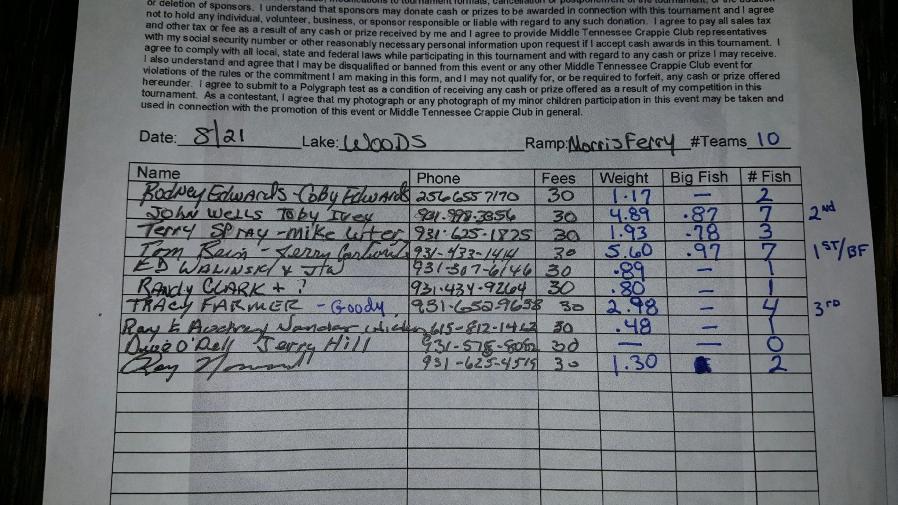 or deletion of sponsors. I understand that sponsors may donate cash or prizes to be awarded in connection with this tournament and I agree
not to hold any individual, volunteer, business, or sponsor responsible or liable with regard to any such donation. I agree to pay all sales tax
and other tax or fee as a result of any cash or prize received by me and I agree to provide Middle Tennessee Crappie Club representatives
with my social security number or other reasonably necessary personal information upon request if I accept cash awards in this tournament. I
agree to comply with all local, state and federal laws while participating in this tournament and with regard to any cash or prize I may receive.
I also understand and agree that I may be disqualified or banned from this event or any other Middle Tennessee Crappie Club event for
violations of the rules or the commitment I am making in this form, and I may not qualify for, or be required to forfeit, any cash or prize offered
hereunder. I agree to submit to a Polygraph test as a condition of receiving any cash or prize offered as a result of my competition in this
tournament. As a contestant, I agree that my photograph or any photograph of my minor children participation in this event may be taken and
used in connection with the promotion of this event or Middle Tennessee Crappie Club in general.
Date: 8/21 Lake: WOODS Ramp: Morris Ferry #Teams 10
Name Phone Fees Weight Big Fish # Fish
Rodney Edwards - Coby Edwards 256 655 7170 30 1.17 — 2
John Wells Toby Ivey 30 4.89 .87 7 2nd
Terry SPRAY - mike 931-625-1825 30 1.93 .78 3
Tom - Jerry 931-433-1414 30 5.60 .97 7 1ST/BF
ED WALINSKI & JW 931-307-6146 30 .89 — 1
RANDY CLARK + ? 931-434-9264 30 .80 — 1
TRACY FARMER - Goody 931-652-9658 30 2.98 — 4 3rd
Ray & 30 .48 — 1
O'Dell Jerry Hill 30 — — 0
931-625-4519 30 1.30 2